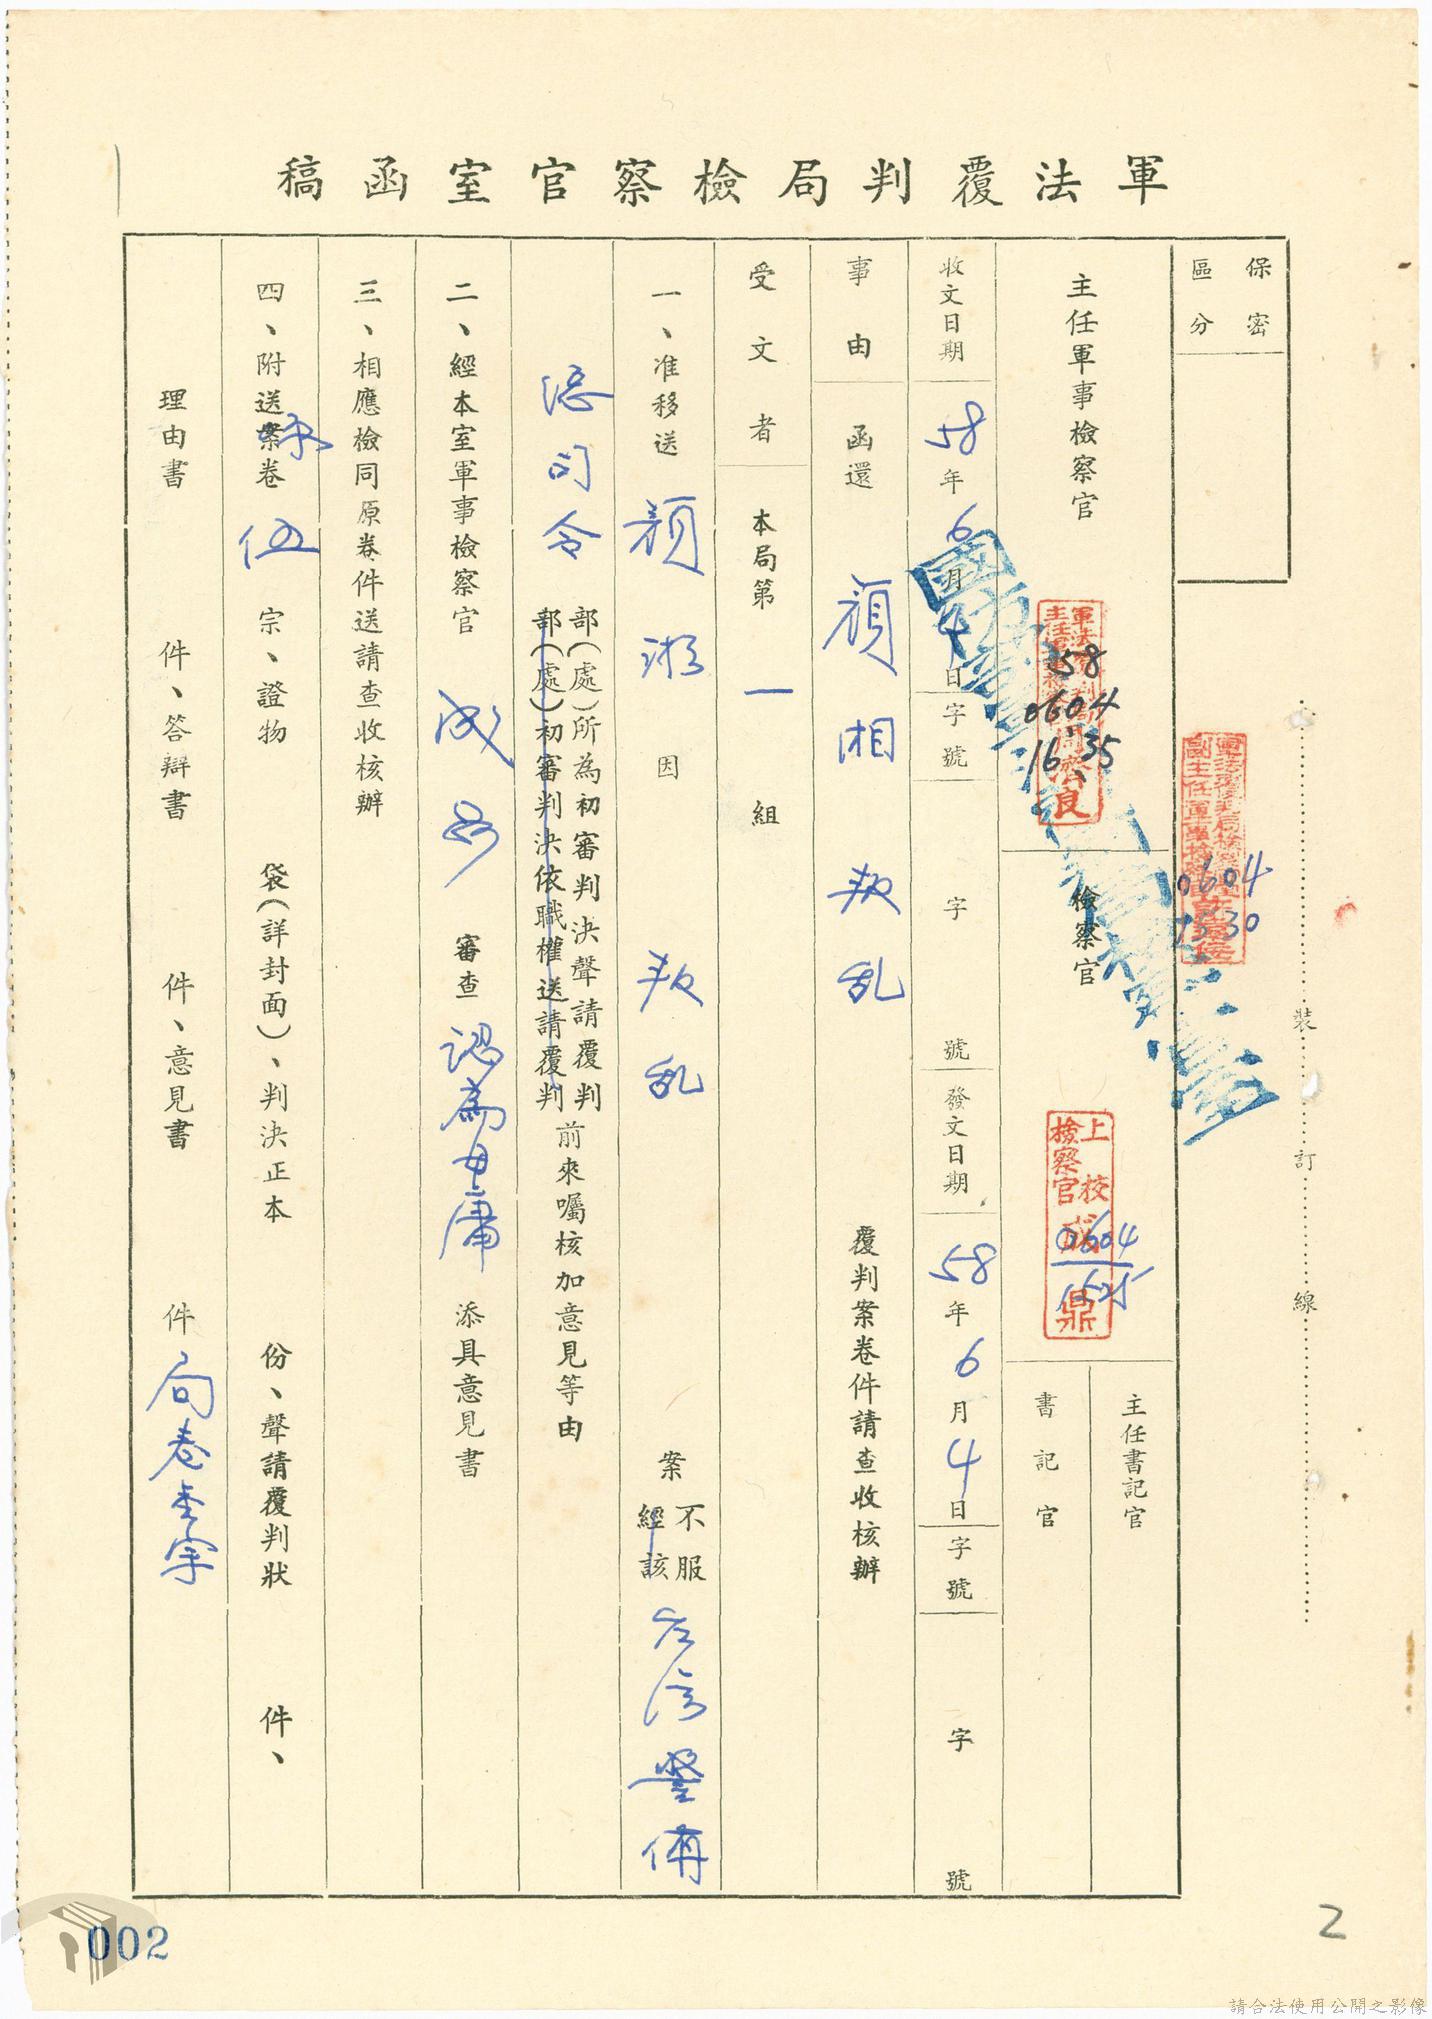 軍法覆判局檢察官室函稿
保密
區分
主任軍事檢察官
檢察官
主任書記官
書記官
58
0604
16 35
0604
1530
上校
檢察官
鼎
0604
收文日期 58年6月4日 字號 字 號 發文日期 58年6月4日 字號 字 號
事由 函還 顏湘 叛乱 覆判案卷件請查收核辦
受文者 本局第一組
一、准移送 顏湘 因 叛乱 案不服 經該 台灣警備
總司令 部(處)所為初審判決聲請覆判 部(處)初審判決依職權送請覆判 前來囑核加意見等由
二、經本室軍事檢察官 成鼎 審查 認為毋庸 添具意見書
三、相應檢同原卷件送請查收核辦
四、附送案卷 伍 宗、證物 袋(詳封面)、判決正本 份、聲請覆判狀 件、
理由書 件、答辯書 件、意見書 件
裝 訂 線
002
2
請合法使用公開之影像